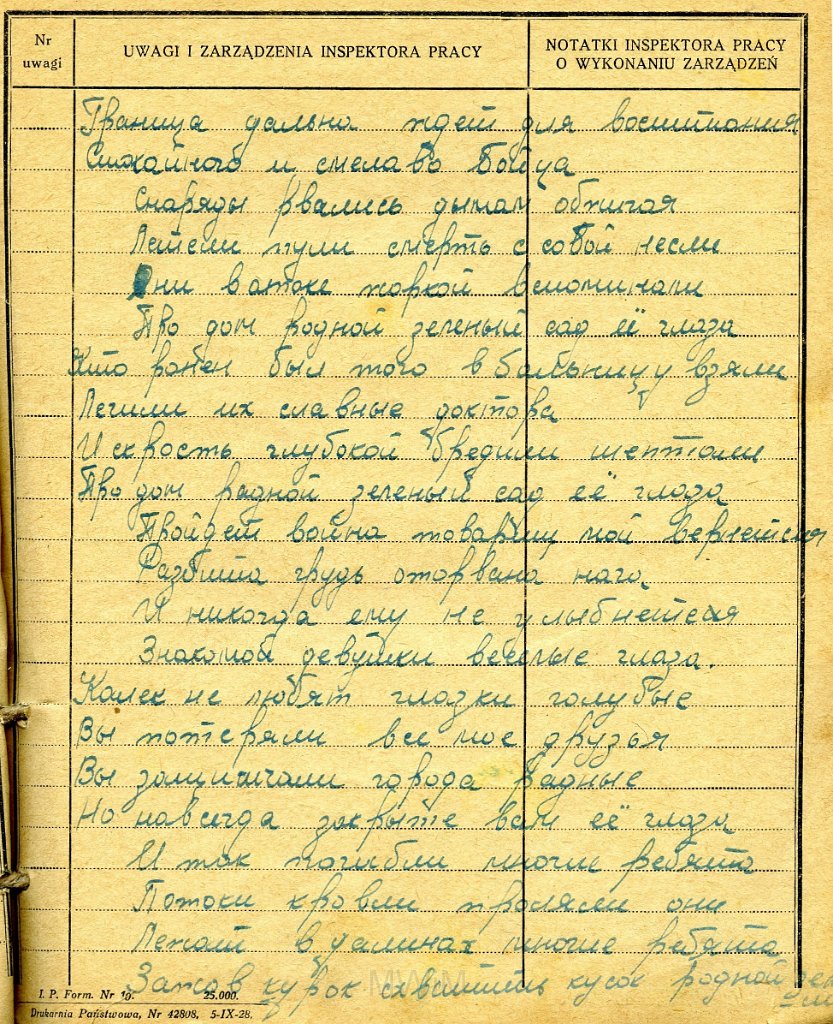 Nr uwagi
UWAGI I ZARZĄDZENIA INSPEKTORA PRACY
NOTATKI INSPEKTORA PRACY O WYKONANIU ZARZĄDZEŃ
Граница дальна ждет для воспитания
и смелаво бойца
Снаряды рвались дымам обжигая
Летели пули смерть с собой несли
Они в атоке жаркой вспоминали
Про дом родной зеленый сад её глаза
Кто ранен был того в больницу взяли
Лечили их славные доктора
И скрость глубокой бредили шептали
Про дом радной зеленый сад её глаза
Пройдет война товарищ мой вернется
Разбита грудь оторвана нага
И никогда ему не улыбнется
Знакомой девушки веселые глаза.
Калек не любят глазки голубые
Вы потеряли все мое друзья
Вы защищали города радные
Но навсегда закрыте вам её глаза
И так погибли многие ребята
Потоки крови проляли они
Лежат в далинах многие ребята
Зажав курок схватить кусок родной
I. P. Form. Nr 10. 25.000.
Drukarnia Państwowa, Nr 42808, 5-IX-28.